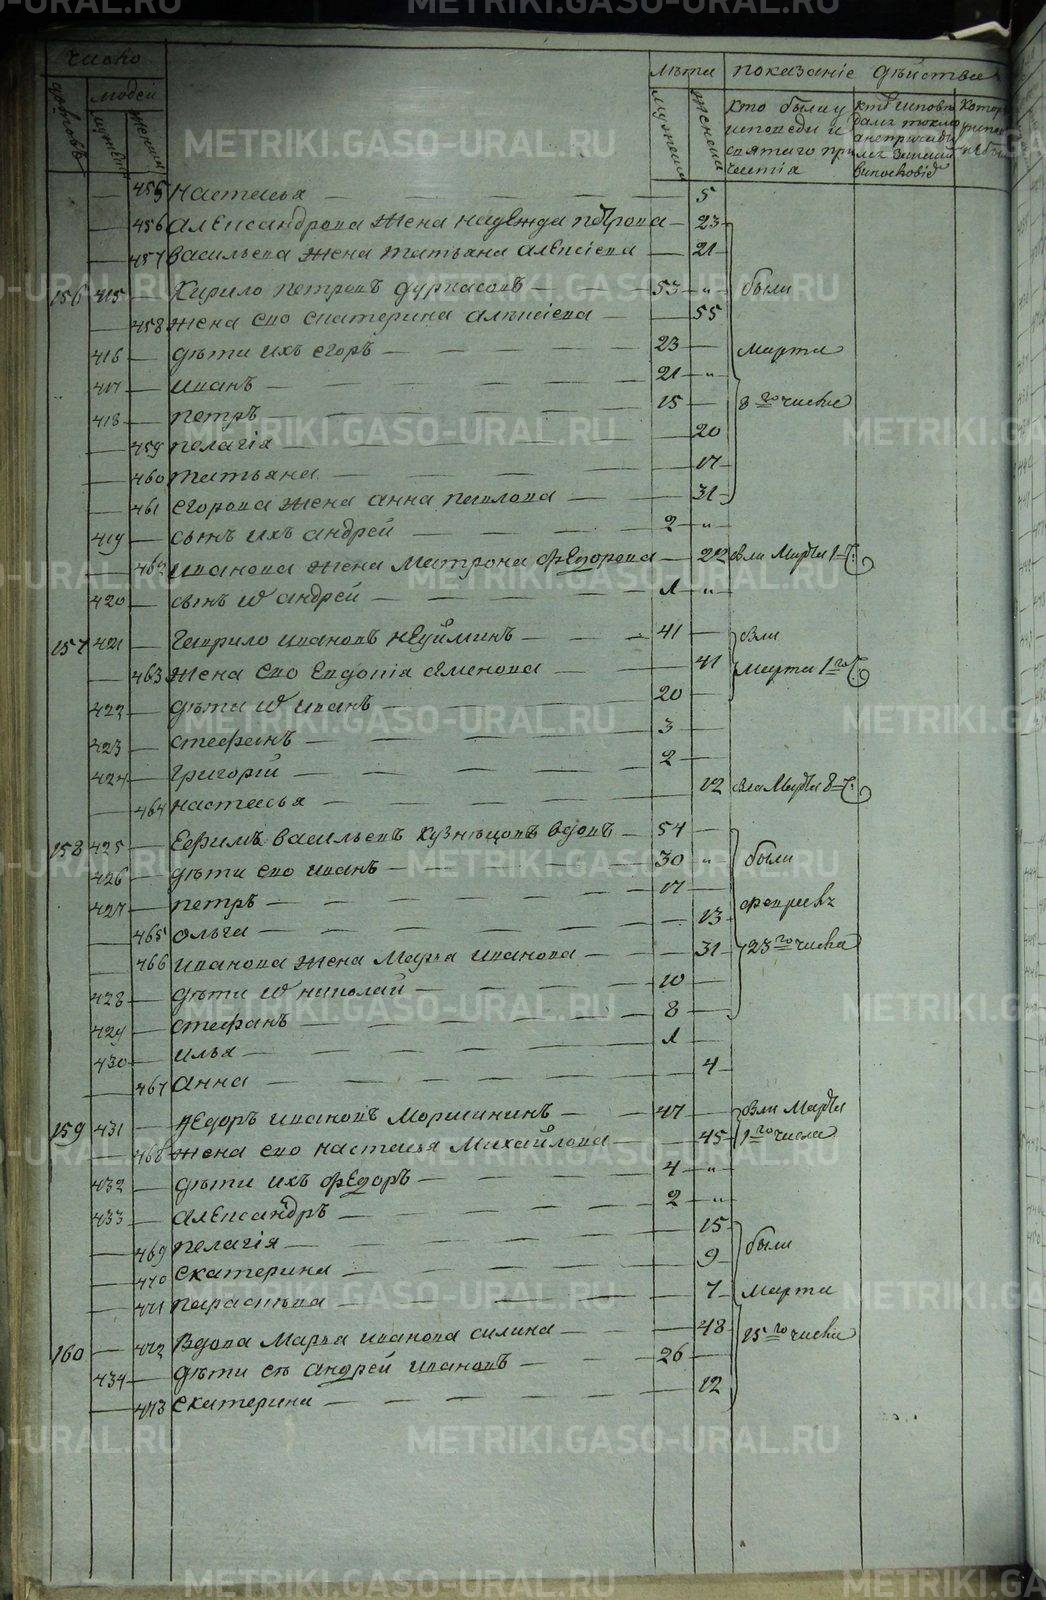 число
лѣта показаніе дѣйства
дворовъ
людей
мужескъ
женска
мужеска
женска
кто были у исповеди и святаго причастія
455 настасья 5
456 александрова жена надежда петрова 23
457 васильева жена татьяна алексіева 21
156 415 Кирило петровъ дурнасовъ 53 были
458 жена ево екатерина алексіева 55
416 дѣти ихъ егоръ 23 марта
417 иванъ 21
418 петръ 15 8го числа
459 пелагія 20
460 татьяна 17
461 егорова жена анна павлова 31
419 сынъ ихъ андрей 2
462 иванова жена матрона федорова 22
420 сынъ андрей 1
157 421 Гаврило ивановъ неуйминъ 41
463 жена ево евдокія семенова 41 марта 1го
422 дѣти иванъ 20
423 стефанъ 3
424 григорій 2
464 настасья 12
158 425 Ефимъ васильевъ кузнѣцовъ вдовъ 54
426 дѣти ево иванъ 30 были
427 петръ 17 февраля
465 ольга 13
466 иванова жена марья иванова 31 23го числа
428 дѣти николай 10
429 стефанъ 8
430 илья 1
467 анна 4
159 431 федоръ ивановъ моршининъ 47
468 жена ево настасья михайлова 45 1го числа
432 дѣти ихъ федоръ 4
433 александръ 2
469 пелагія 15 были
470 екатерина 9
471 парасковья 7 марта
160 472 вдова марья иванова силина 48 15го числа
434 дѣти еѣ андрей ивановъ 26
473 екатерина 12
METRIKI.GASO-URAL.RU